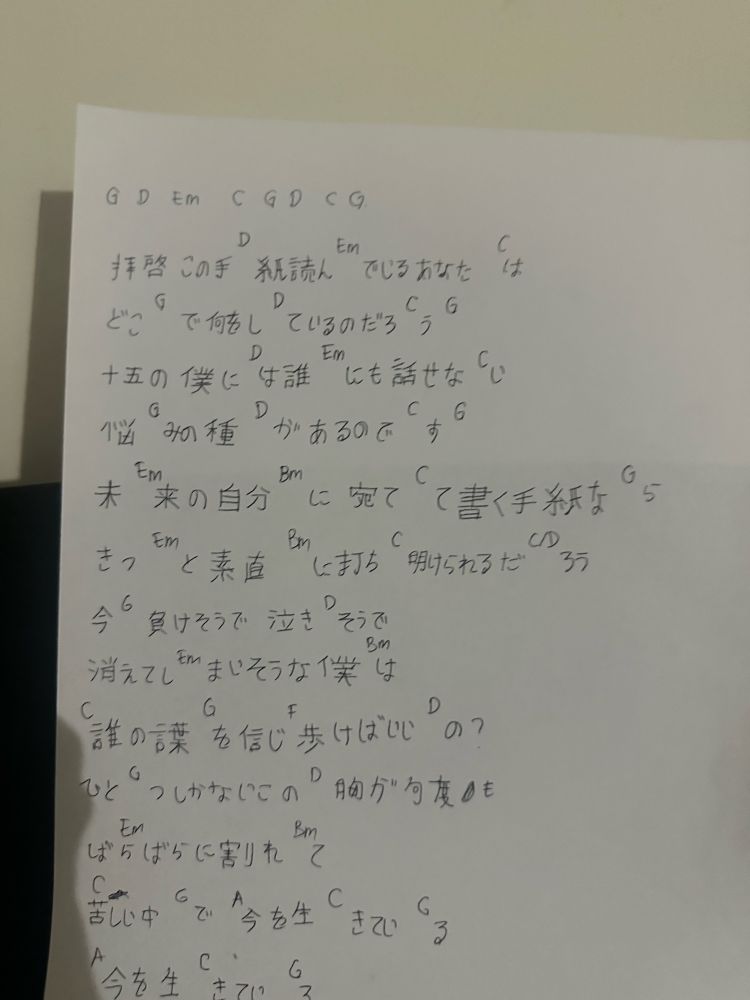 G D Em C G D C G
D Em C
拝啓 この手紙読んでいるあなたは
G D C G
どこで何をしているのだろう
D Em C
十五の僕には誰にも話せない
G D C G
悩みの種があるのです
Em Bm C G
未来の自分に宛てて書く手紙なら
Em Bm C C/D
きっと素直に打ち明けられるだろう
G D
今負けそうで泣きそうで
Em Bm
消えてしまいそうな僕は
C G F D
誰の言葉を信じ歩けばいいの?
G D
ひとつしかないこの胸が何度も
Em Bm
ばらばらに割れて
C G A C G
苦しい中で今を生きている
A C G
今を生きている